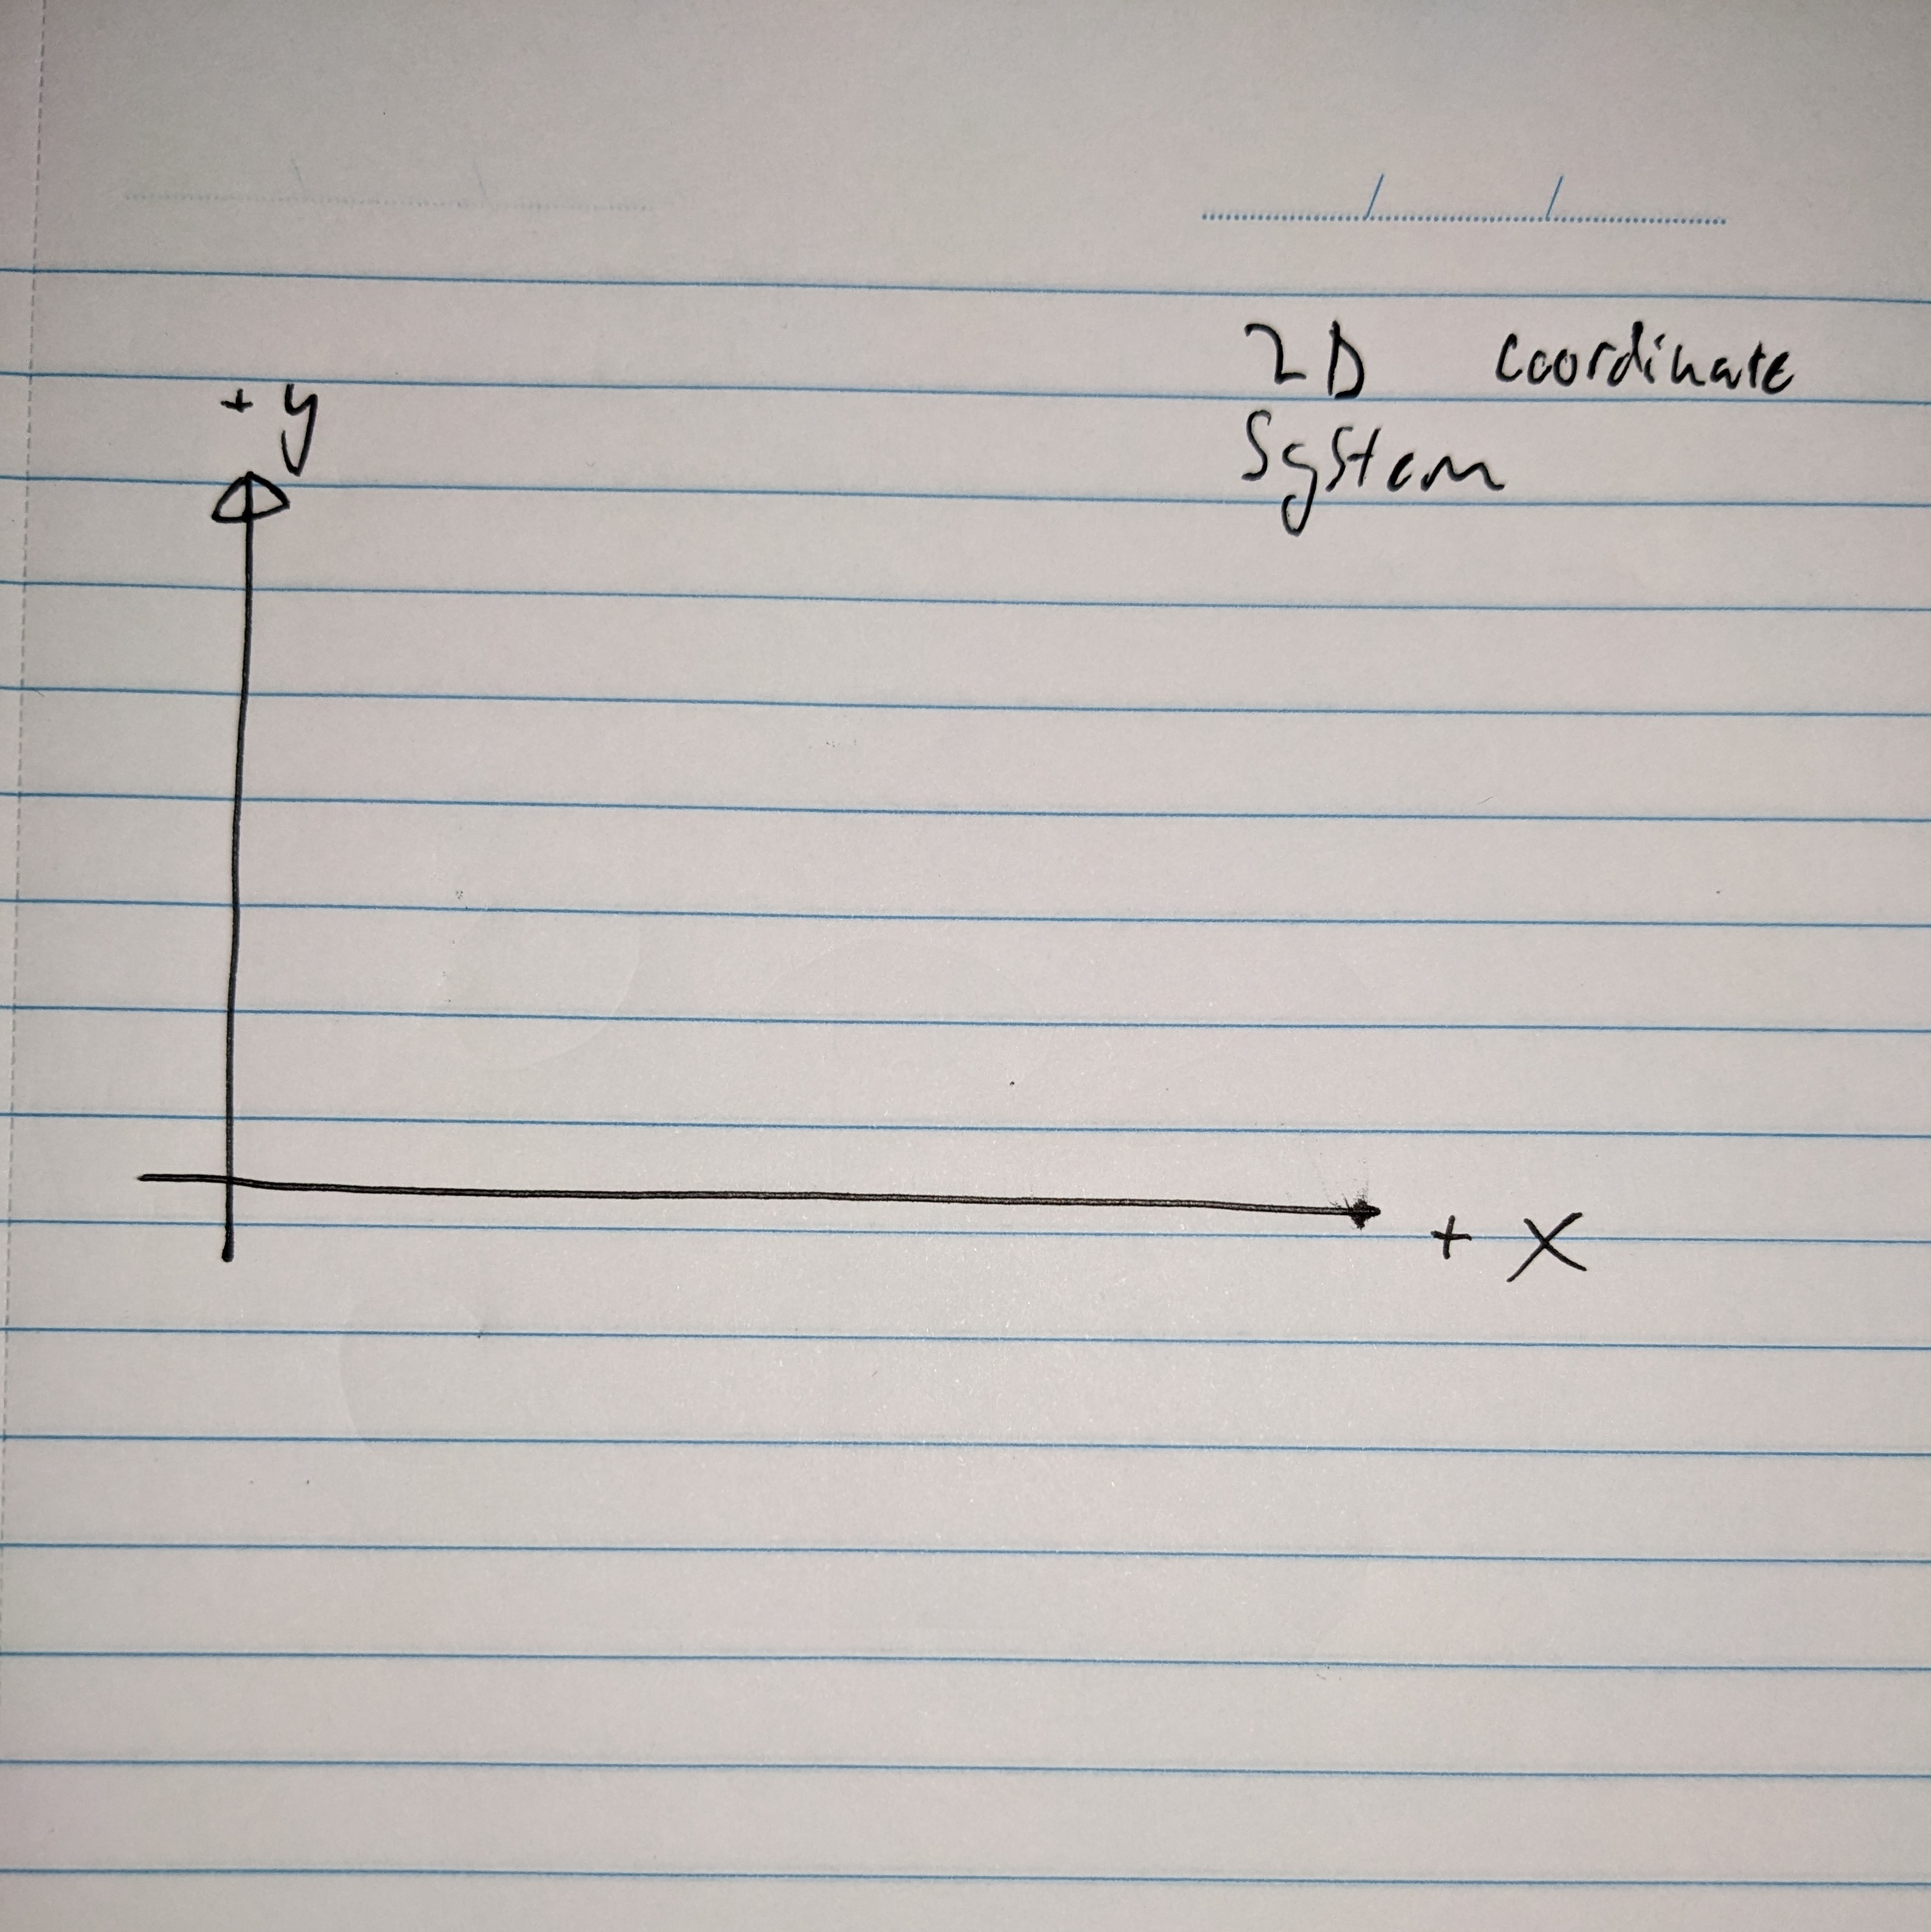 2D coordinate
System
+ y
+ X